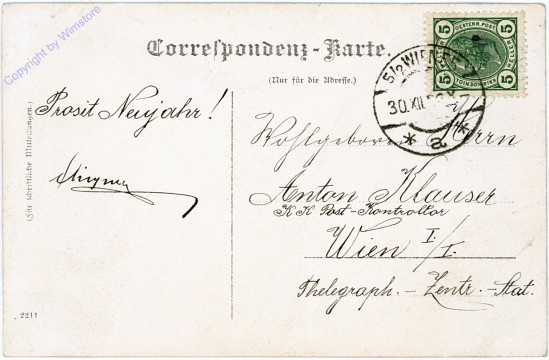 Copyright by Wimstore
Correspondenz-Karte.
(Nur für die Adresse.)
(Für schriftliche Mitteilungen.)
Prosit Neujahr!
Wohlgeboren Herrn
Anton Klauser
KK Post-Kontrollor
Wien I/I.
Thelegraph.-Zentr.-Stat.
2211
5 5
5 5
OESTERR. POST
5/2 WIEN
30.XII.
* a *